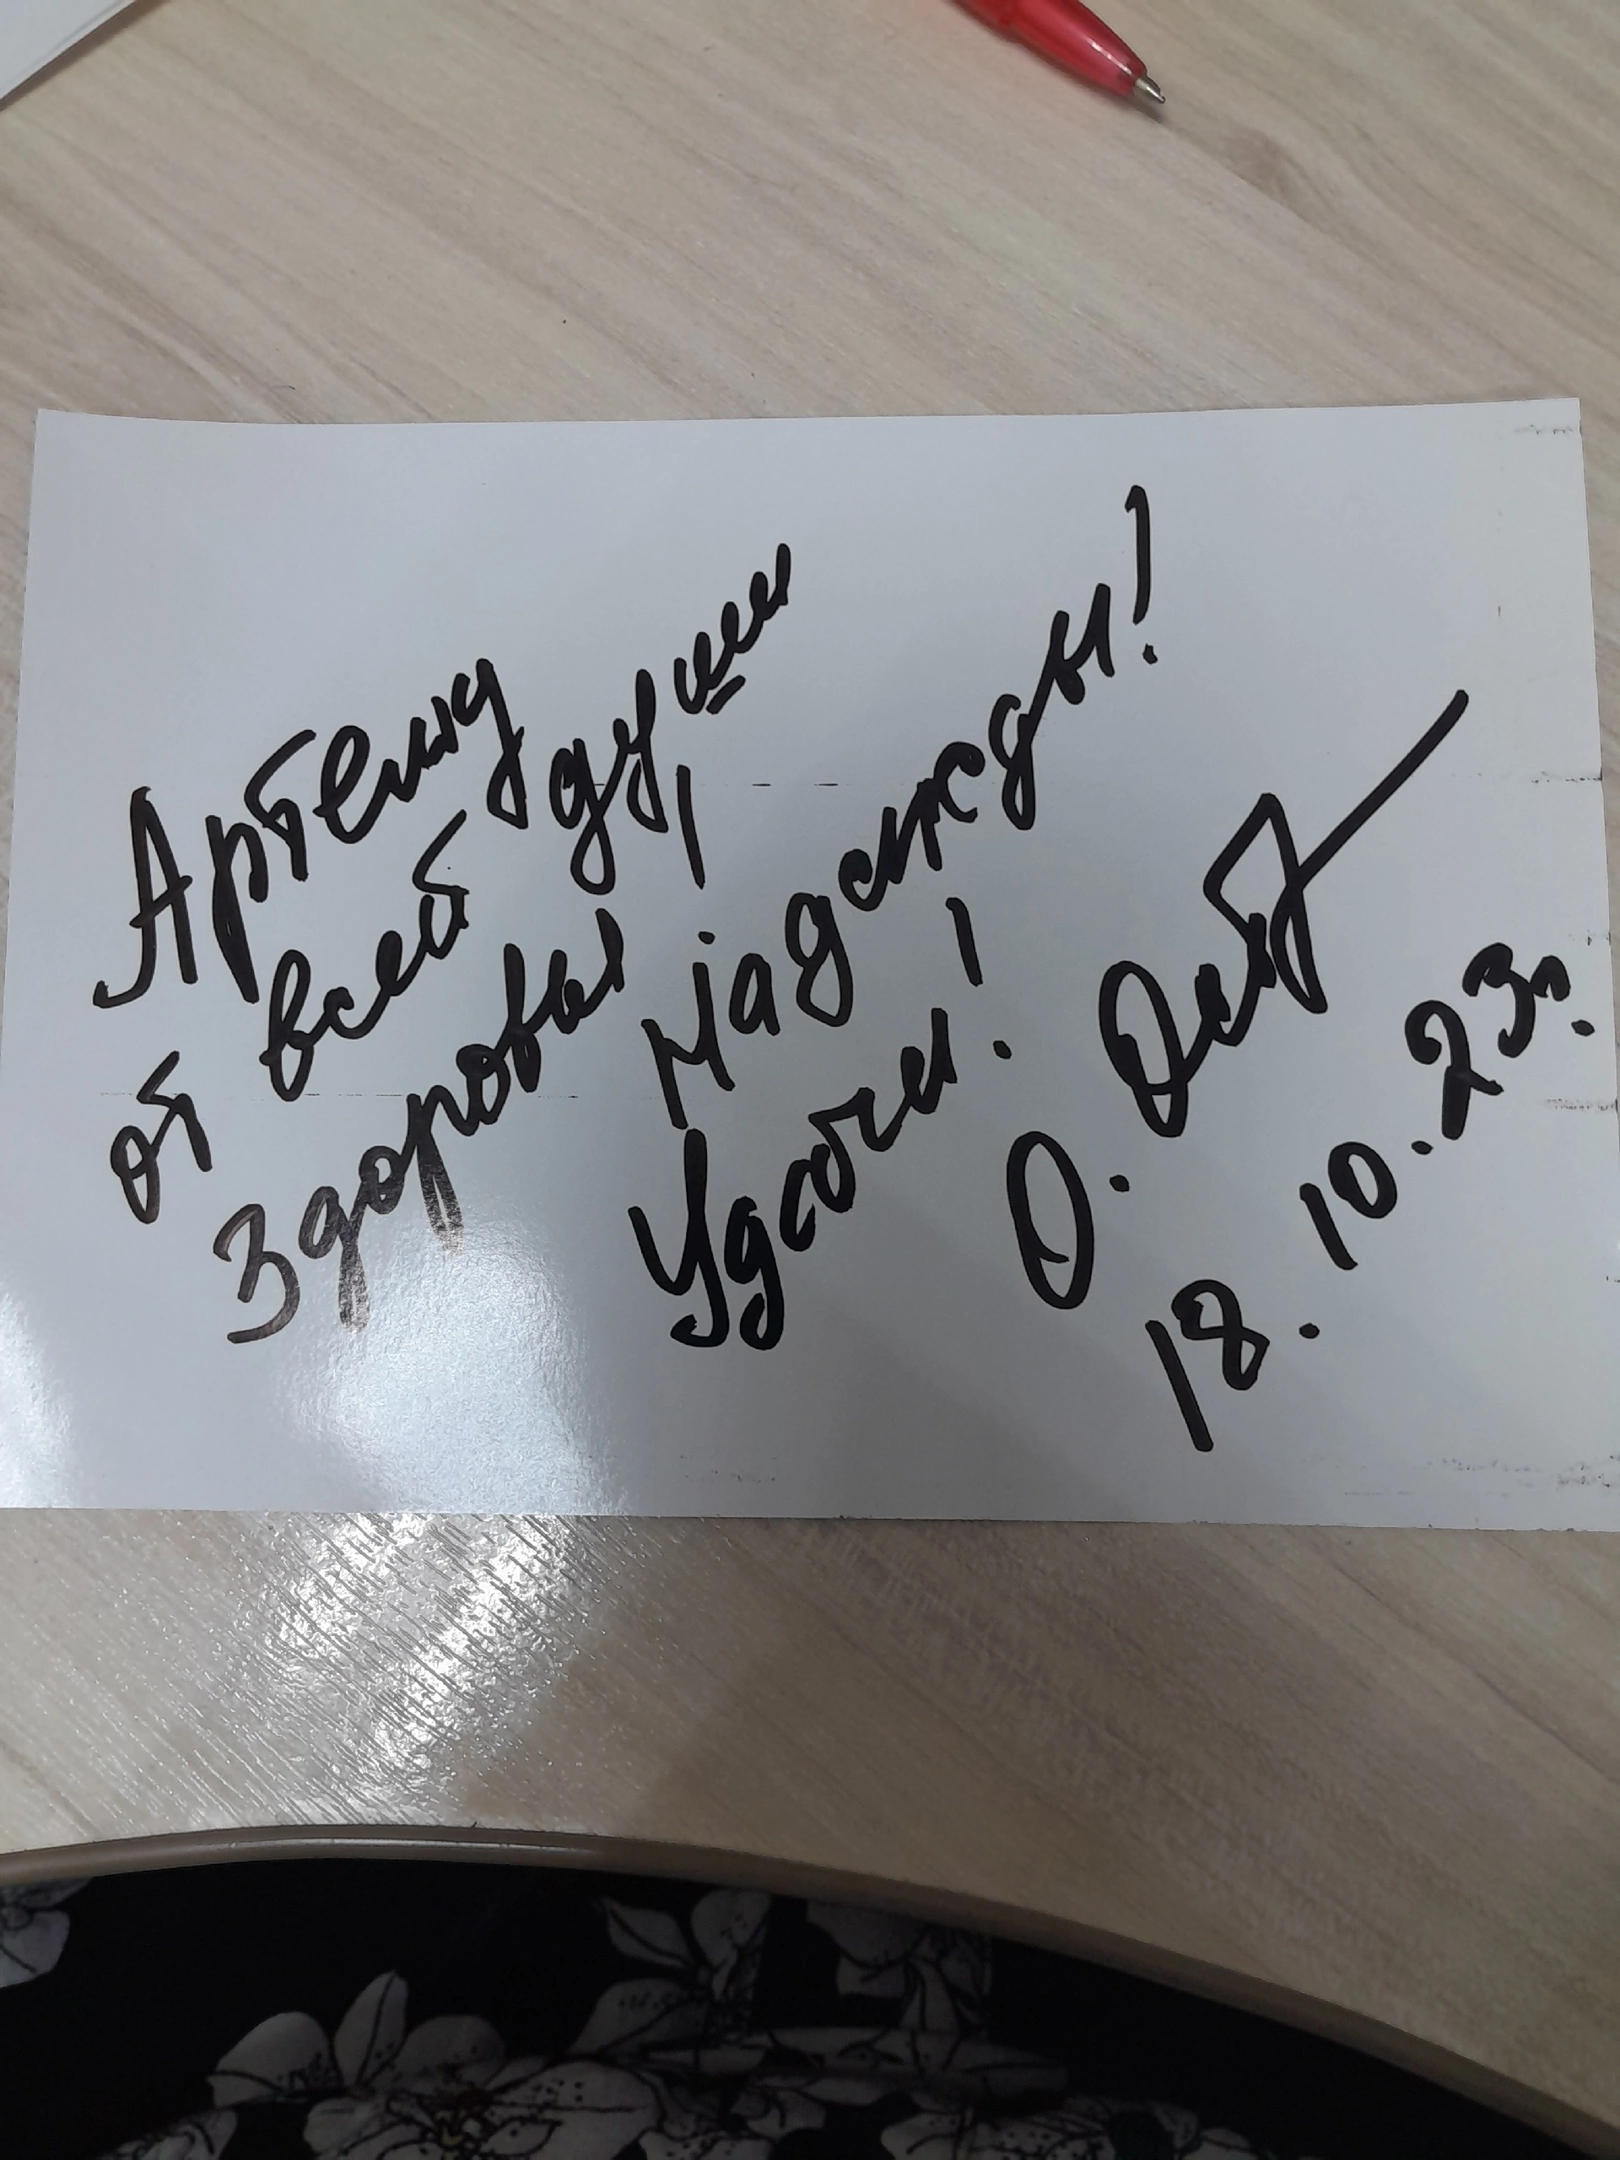 Артему
от всей души
Здоровья!
Надежды!
Удачи!
О.
18.10.23г.